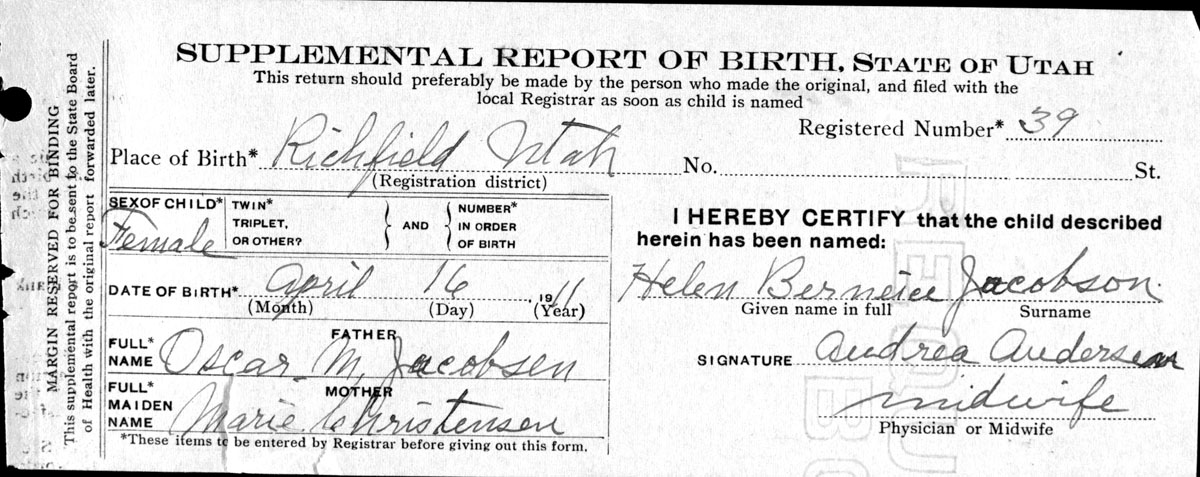 SUPPLEMENTAL REPORT OF BIRTH, STATE OF UTAH
This return should preferably be made by the person who made the original, and filed with the
local Registrar as soon as child is named
Registered Number* 39
Place of Birth* Richfield Utah No. St.
(Registration district)
SEX OF CHILD* Female
TWIN* TRIPLET, OR OTHER? } AND { NUMBER* IN ORDER OF BIRTH
DATE OF BIRTH* April 16 1911
(Month) (Day) (Year)
FATHER
FULL* NAME Oscar M. Jacobsen
MOTHER
FULL* MAIDEN NAME Marie Christensen
*These items to be entered by Registrar before giving out this form.
I HEREBY CERTIFY that the child described
herein has been named:
Helen Berneice Jacobson
Given name in full Surname
SIGNATURE Andrea Andersen
midwife
Physician or Midwife
MARGIN RESERVED FOR BINDING
This supplemental report is to be sent to the State Board
of Health with the original report forwarded later.